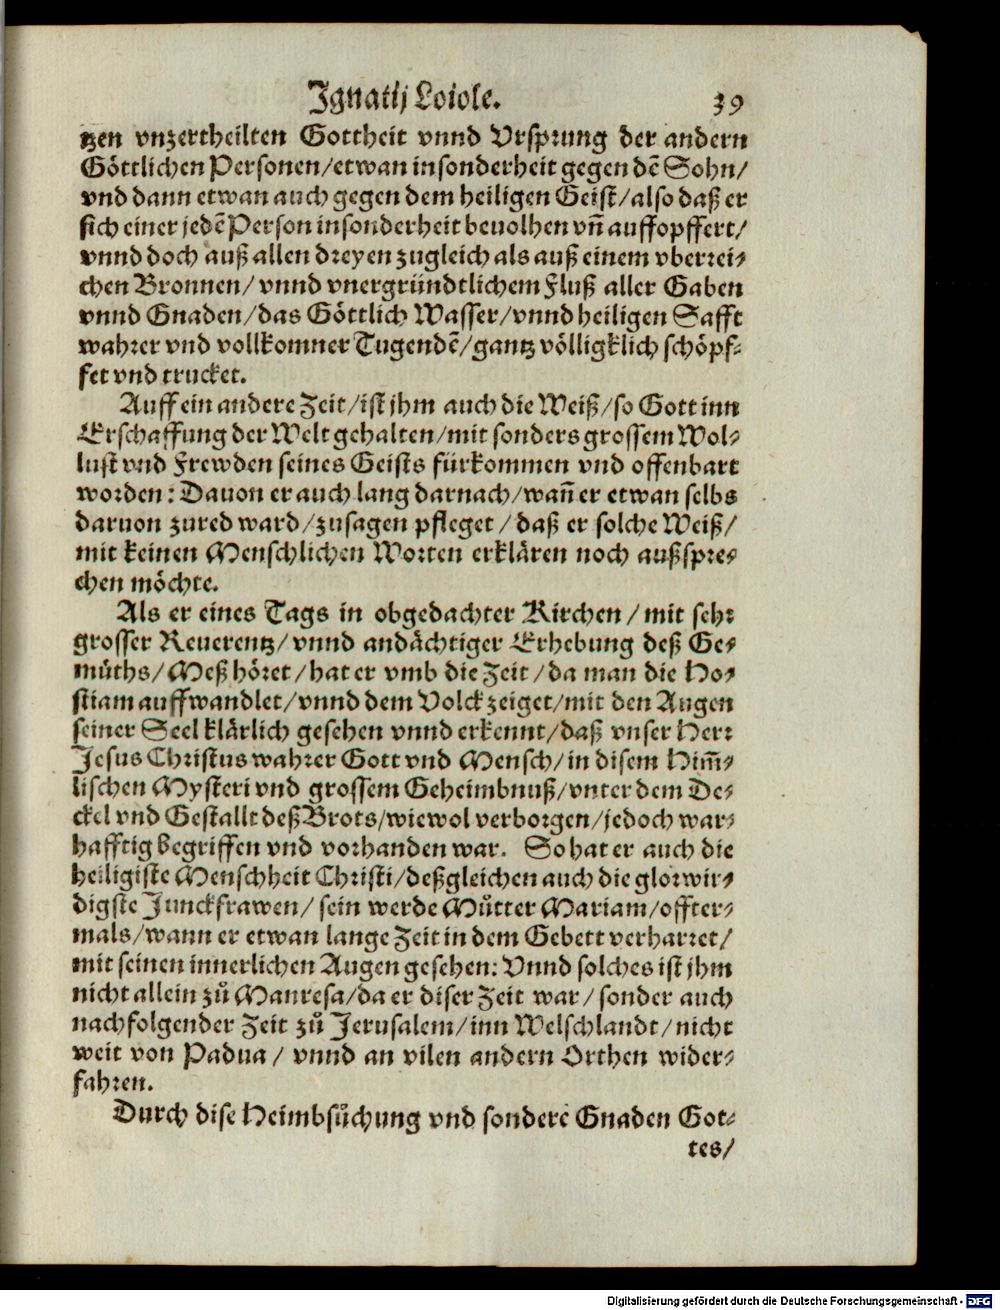 Ignatij Loiole. 39
tzen vnzertheilten Gottheit vnnd Vrsprung der andern
Göttlichen Personen/etwan insonderheit gegen dē Sohn/
vnd dann etwan auch gegen dem heiligen Geist/also daß er
sich einer jedē Person insonderheit beuolhen vñ auffopffert/
vnnd doch auß allen dreyen zugleich als auß einem vberrei-
chen Bronnen/ vnnd vnergründtlichem Fluß aller Gaben
vnnd Gnaden/das Göttlich Wasser/vnnd heiligen Safft
wahrer vnd vollkomner Tugendē/gantz völligklich schöpf-
fet vnd trucket.
Auff ein andere Zeit/ist jhm auch die Weiß/so Gott inn
Erschaffung der Welt gehalten/mit sonders grossem Wol-
lust vnd Frewden seines Geists fürkommen vnd offenbart
worden: Dauon er auch lang darnach/wañ er etwan selbs
daruon zured ward/zusagen pfleget/ daß er solche Weiß/
mit keinen Menschlichen Worten erklären noch außspre-
chen möchte.
Als er eines Tags in obgedachter Kirchen/ mit sehr
grosser Reuerentz/ vnnd andächtiger Erhebung deß Ge-
müths/ Meß höret/hat er vmb die Zeit/da man die Ho-
stiam auffwandlet/vnnd dem Volck zeiget/mit den Augen
seiner Seel klärlich gesehen vnnd erkennt/daß vnser Herr
Jesus Christus wahrer Gott vnd Mensch/in disem Him̃-
lischen Mysteri vnd grossem Geheimbnuß/vnter dem De-
ckel vnd Gestallt deß Brots/wiewol verborgen/jedoch war-
hafftig begriffen vnd vorhanden war. So hat er auch die
heiligiste Menschheit Christi/deßgleichen auch die glorwir-
digste Junckfrawen/ sein werde Můtter Mariam/offter-
mals/wann er etwan lange Zeit in dem Gebett verharret/
mit seinen innerlichen Augen gesehen: Vnnd solches ist jhm
nicht allein zů Manresa/da er diser Zeit war/ sonder auch
nachfolgender Zeit zů Jerusalem/inn Welschlandt/nicht
weit von Padua/ vnnd an vilen andern Orthen wider-
fahren.
Durch dise Heimbsůchung vnd sondere Gnaden Got-
tes/
Digitalisierung gefördert durch die Deutsche Forschungsgemeinschaft - DFG